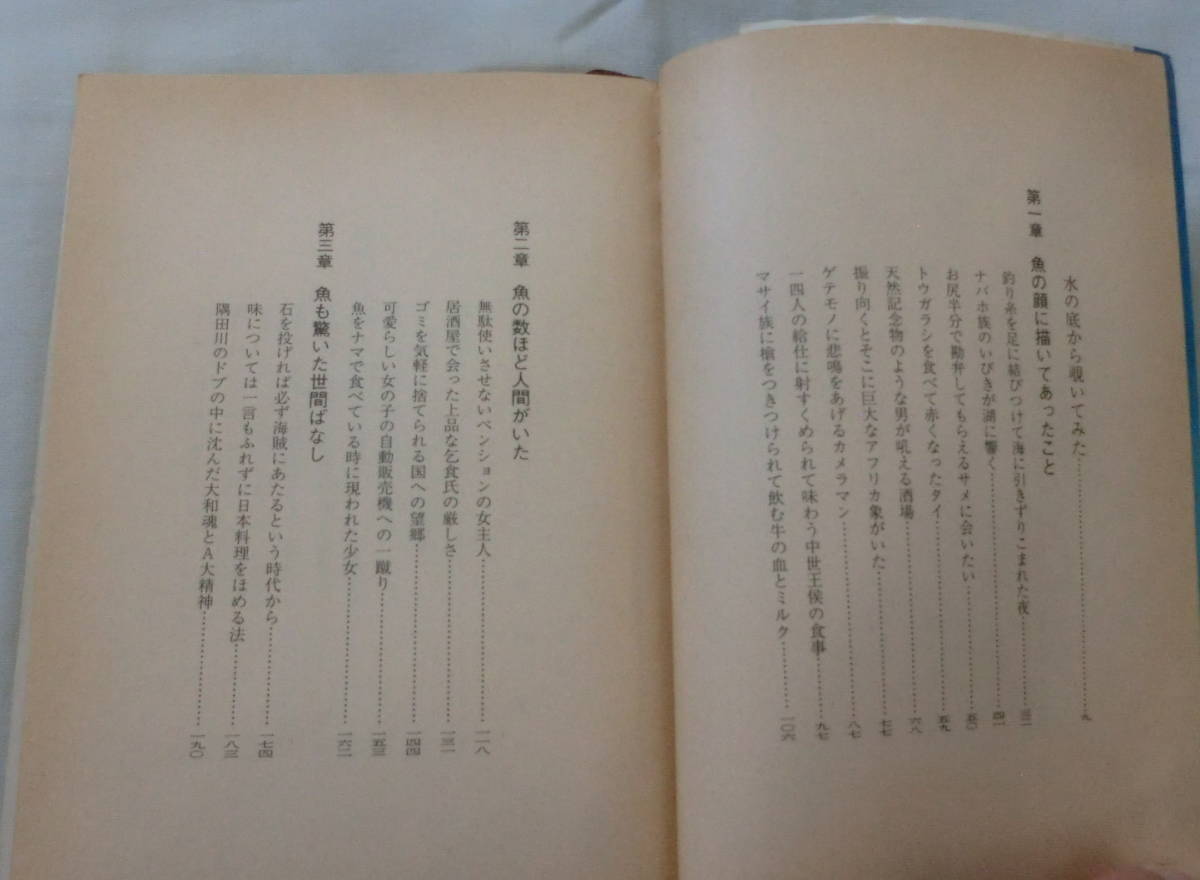 水の底から覗いてみた…………九
第一章　魚の顔に描いてあったこと
釣り糸を足に結びつけて海に引きずりこまれた夜…………三二
ナバホ族のいびきが湖に響く…………四一
お尻半分で勘弁してもらえるサメに会いたい…………五〇
トウガラシを食べて赤くなったタイ…………五九
天然記念物のような男が吼える酒場…………六八
振り向くとそこに巨大なアフリカ象がいた…………七七
ゲテモノに悲鳴をあげるカメラマン…………八七
一四人の給仕に射すくめられて味わう中世王侯の食事…………九七
マサイ族に槍をつきつけられて飲む牛の血とミルク…………一〇六
第二章　魚の数ほど人間がいた
無駄使いさせないペンションの女主人…………一一八
居酒屋で会った上品な乞食氏の厳しさ…………一三一
ゴミを気軽に捨てられる国への望郷…………一四四
可愛らしい女の子の自動販売機への一蹴り…………一五三
魚をナマで食べている時に現われた少女…………一六二
第三章　魚も驚いた世間ばなし
石を投げれば必ず海賊にあたるという時代から…………一七四
味については一言もふれずに日本料理をほめる法…………一八三
隅田川のドブの中に沈んだ大和魂とA大精神…………一九〇